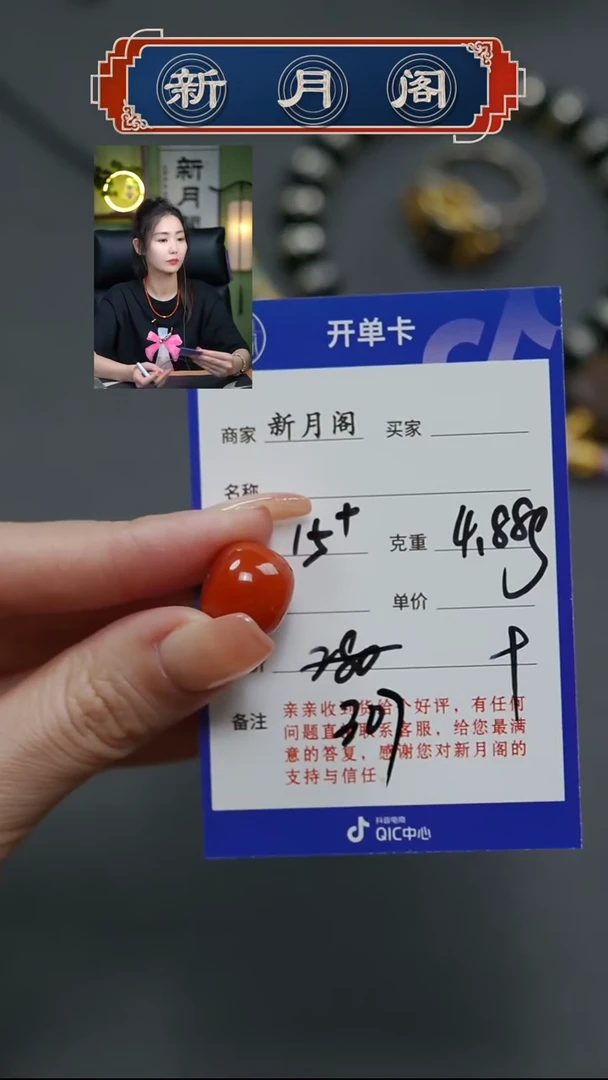 新月阁
新月閣
开单卡
商家 新月阁 买家
名称
15+ 克重 4.88g
单价
280
307
备注 亲亲收到货给个好评，有任何
问题直接联系客服，给您最满
意的答复，感谢您对新月阁的
支持与信任。
抖音电商
QIC中心